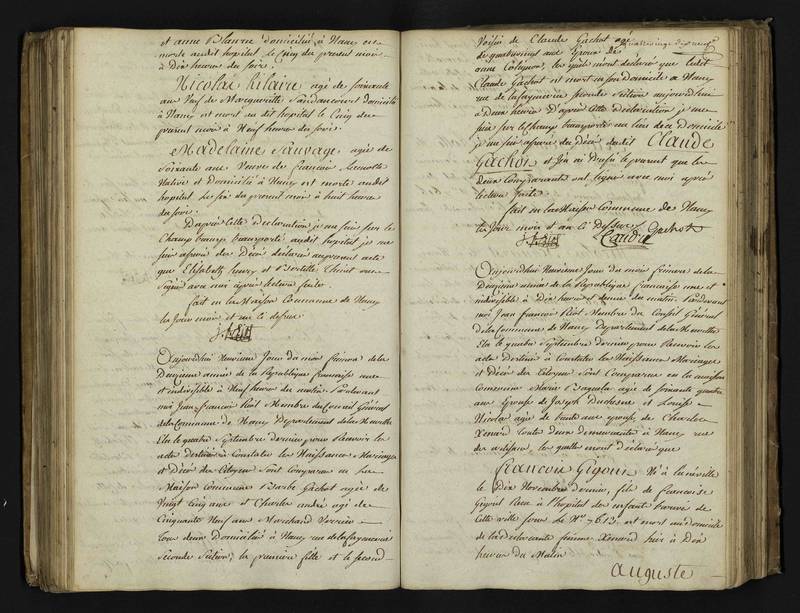 et anne Blaurie domiciliée à Nancy est
morte audit hopital le Cinq du present mois
à Dix heures du soir.
Nicolas hilaire agé de soixante
ans Veuf de Marguerite domicilié
à Nancy est mort au dit hopital le Cinq du
present mois à Neuf heures du soir.
Madelaine Sauvage agée de
Soixante ans Veuve de françois
Native et Domiciliée à Nancy est morte audit
hopital le Six du present mois à huit heures
du soir.
D'après Cette Declaration je me suis sur le
Champ transporté audit hopital je me
suis assuré du Décès déclaré au present acte
que Elisabeth henry et ont
Signé avec moi après lecture faite.
fait en la Maison Commune de Nancy
les Jour mois et an ci dessus
Aujourdhui Neuvieme Jour du mois frimaire de la
Deuxieme année de la Republique francaise une
et indivisible à Neuf heures du matin. Pardevant
moi Jean francois Membre du Conseil Général
de la Commune de Nancy Departement de la Meurthe
Elu le quatre Septembre dernier pour Recevoir les
actes Destinés à Constater les Naissances Mariages
et Décès des Citoyens Sont Comparus en la
Maison Commune Barbe Gachot agée de
Vingt Cinq ans et Charles andré agé de
Cinquante Neuf ans Marchand Verrier
tous deux Domiciliés à Nancy rue de la fayencerie
Seconde Section; la premiere fille et le second
Voisin de Claude Gachot agé quatre vingt dix neuf
de quatre vingt ans Epoux de
anne Colignon, les quels m'ont déclaré que ledit
Claude Gachot est mort en son domicile à Nancy
rue de la fayencerie seconde Section aujourd'hui
à Deux heures D'après Cette Declaration je me
suis sur le champ transporté au lieu de ce Domicile
je me suis assuré du Décès dudit Claude
Gachot et j'en ai dressé le present que les
deux Comparants ont signé avec moi après
lecture faite.
fait en la Maison Commune de Nancy
les Jour mois et an ci Dessus Gachot
Aujourdhui Neuvieme Jour du mois frimaire de la
Deuxieme année de la Republique francaise une et
indivisible à Dix heures et demie du matin. Pardevant
moi Jean francois Membre du Conseil Général
de la Commune de Nancy Departement de la Meurthe
Elu le quatre Septembre dernier pour Recevoir les
actes Destinés à Constater les Naissances Mariages
et Décès des Citoyens Sont Comparus en la maison
Commune Marie agée de soixante quatre
ans Epouse de Joseph Duchesne et Louise
Nicolas agée de trente ans epouse de Charles
Xenard toutes deux demeurantes à Nancy rue
des artisans, les quelles m'ont déclaré que
francois Gigout Né à Lunéville
le Dix Novembre dernier, fils de francoise
Gigout Recu à l'hopital des enfants trouvés de
Cette Ville sous le No 7613. est mort au domicile
de la Déclarante femme Xenard hier à Dix
heures du Matin
auguste